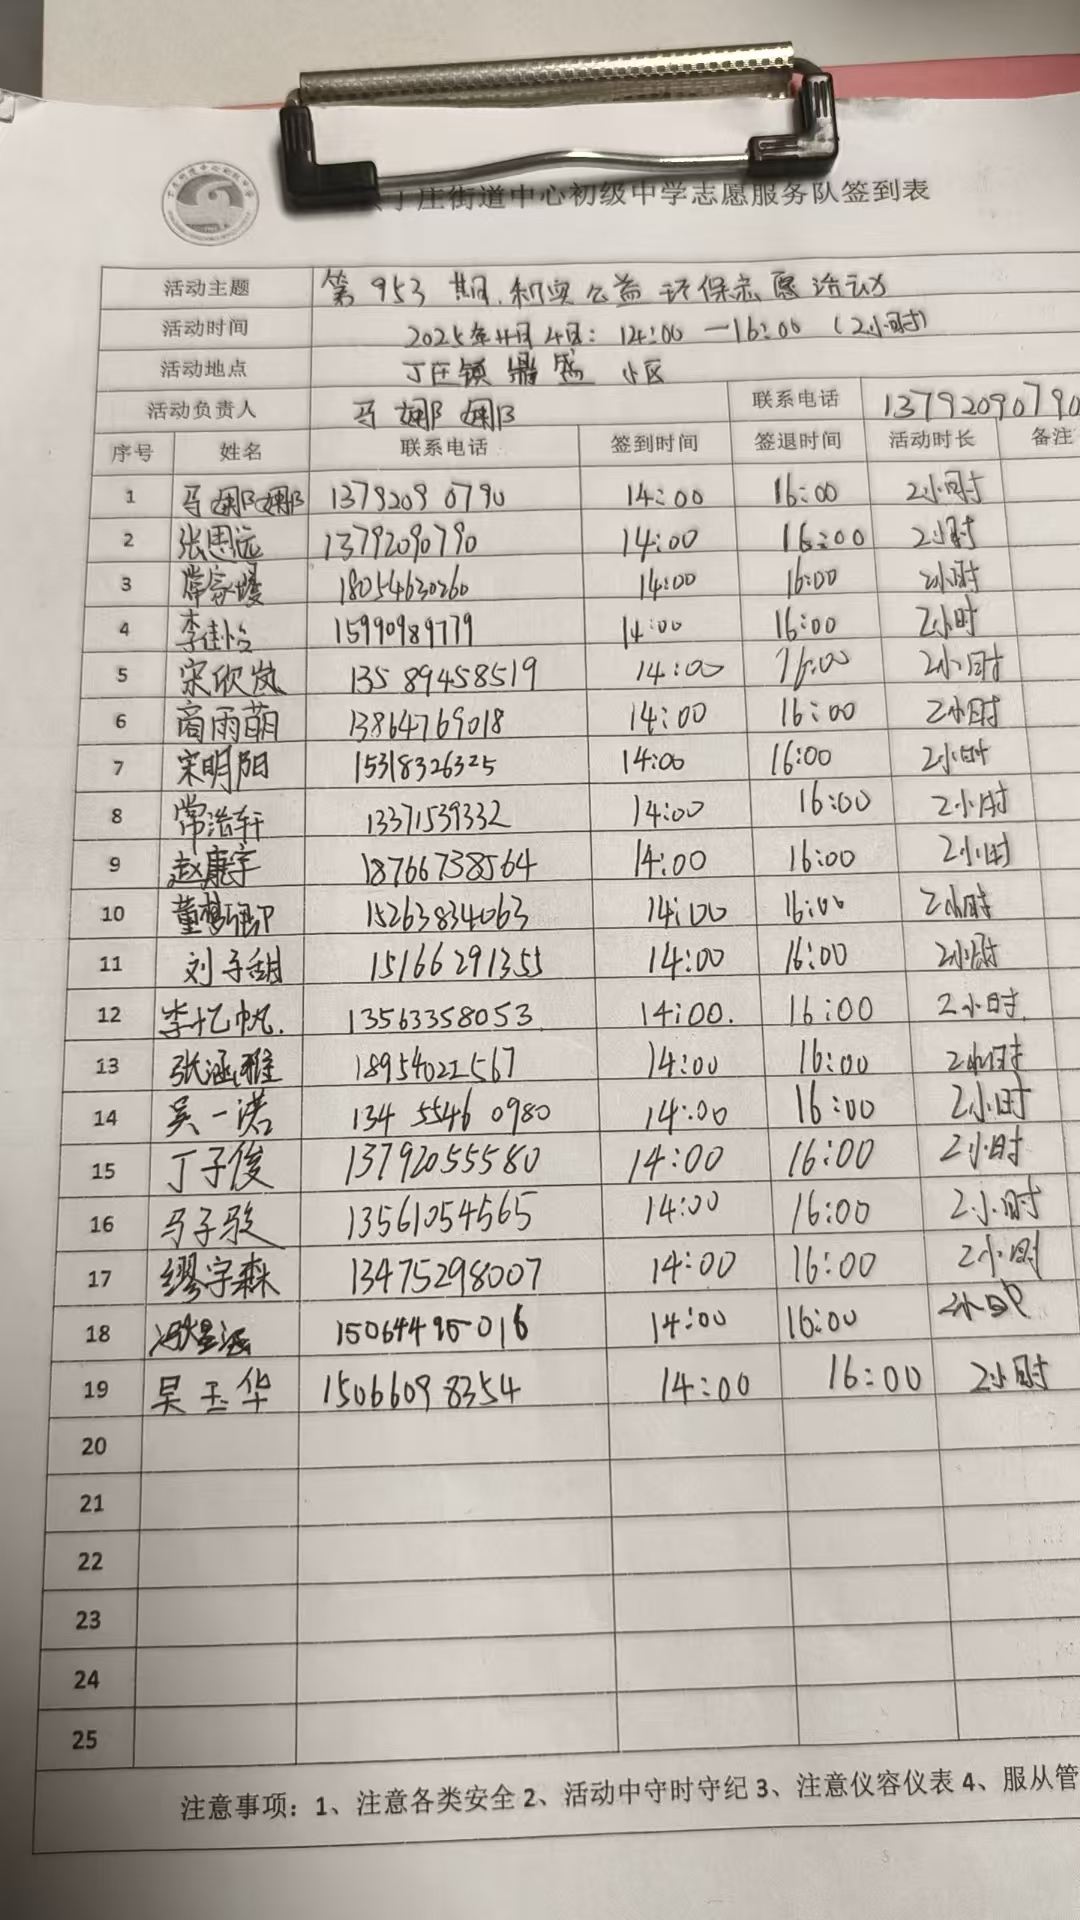 丁庄街道中心初级中学志愿服务队签到表
活动主题 第953期.利奥公益环保志愿活动
活动时间 2025年4月4日: 14:00—16:00 (2小时)
活动地点 丁庄镇鼎盛小区
活动负责人 马娜娜 联系电话 13792090790
序号 姓名 联系电话 签到时间 签退时间 活动时长 备注
1 马娜娜 13792090790 14:00 16:00 2小时
2 张思远 13792090790 14:00 16:00 2小时
3 18054630260 14:00 16:00 2小时
4 李佳怡 15990989779 14:00 16:00 2小时
5 宋欣岚 13589458519 14:00 16:00 2小时
6 商雨萌 13864769018 14:00 16:00 2小时
7 宋明阳 15318326325 14:00 16:00 2小时
8 常浩轩 13371539332 14:00 16:00 2小时
9 赵康宇 18766738564 14:00 16:00 2小时
10 董梦 15263834063 14:00 16:00 2小时
11 刘子甜 15166291355 14:00 16:00 2小时
12 李忆帆. 13563358053. 14:00. 16:00 2小时.
13 张涵雅 18954022567 14:00 16:00 2小时
14 吴一诺 134 5546 0980 14:00 16:00 2小时
15 丁子俊 13792055580 14:00 16:00 2小时
16 马子骏 13561054565 14:00 16:00 2小时
17 缪宇森 13475298007 14:00 16:00 2小时
18 15064495016 14:00 16:00 2小时
19 吴玉华 15066098354 14:00 16:00 2小时
20
21
22
23
24
25
注意事项：1、注意各类安全 2、活动中守时守纪 3、注意仪容仪表 4、服从管